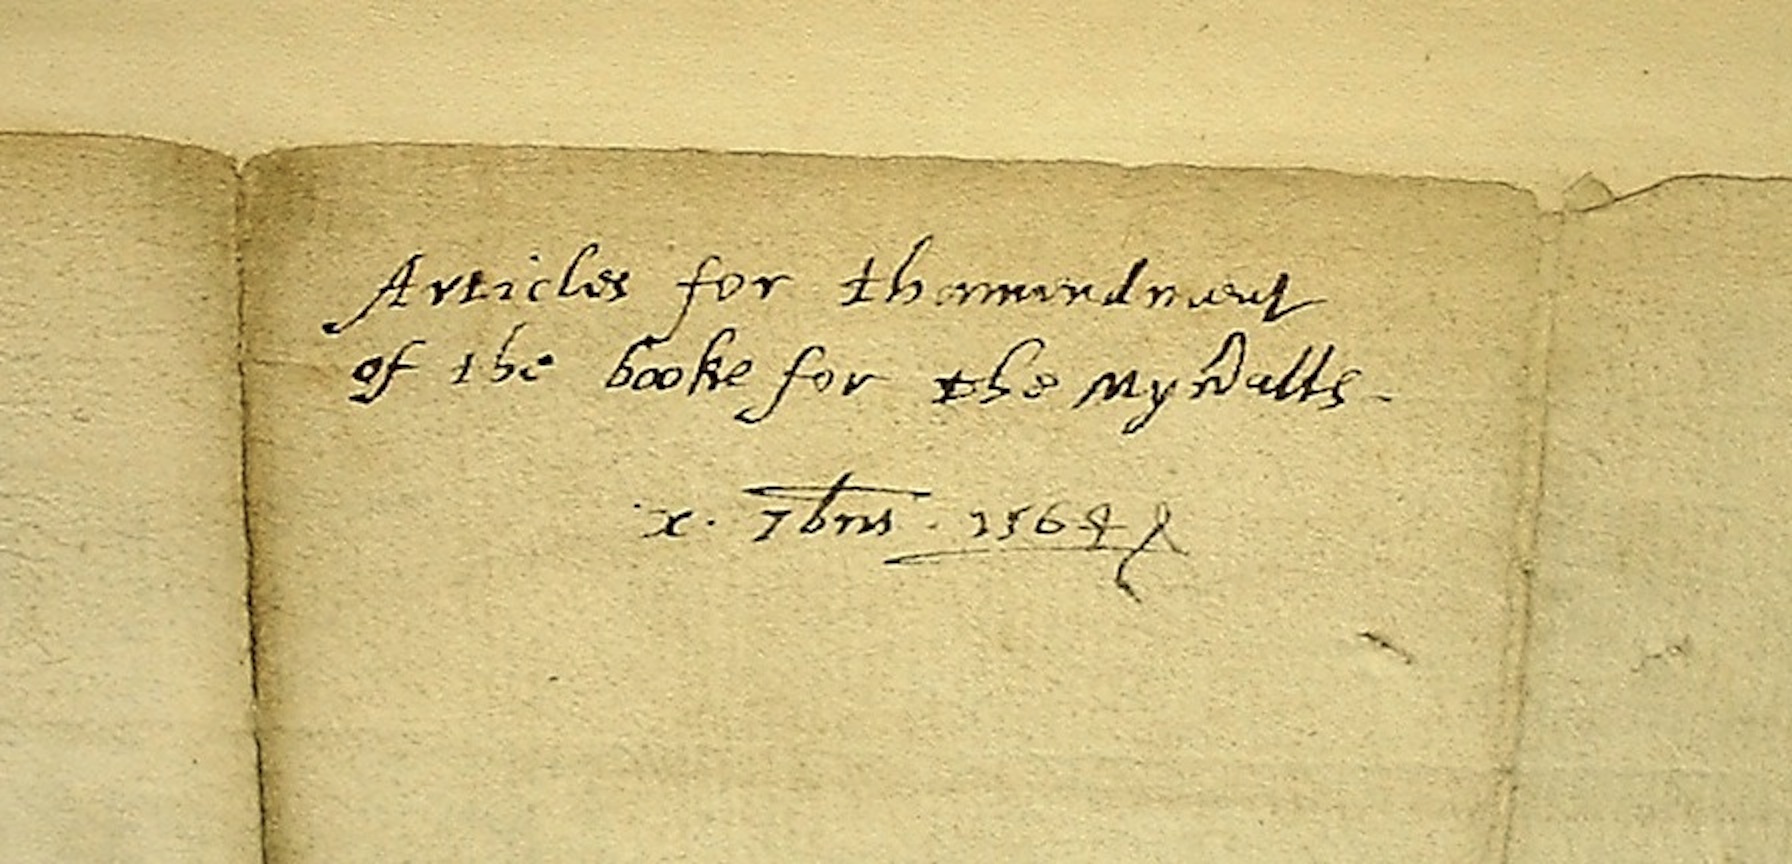 Articles for thamendment
of the booke for the Myneralls
x. 7bris. 1564